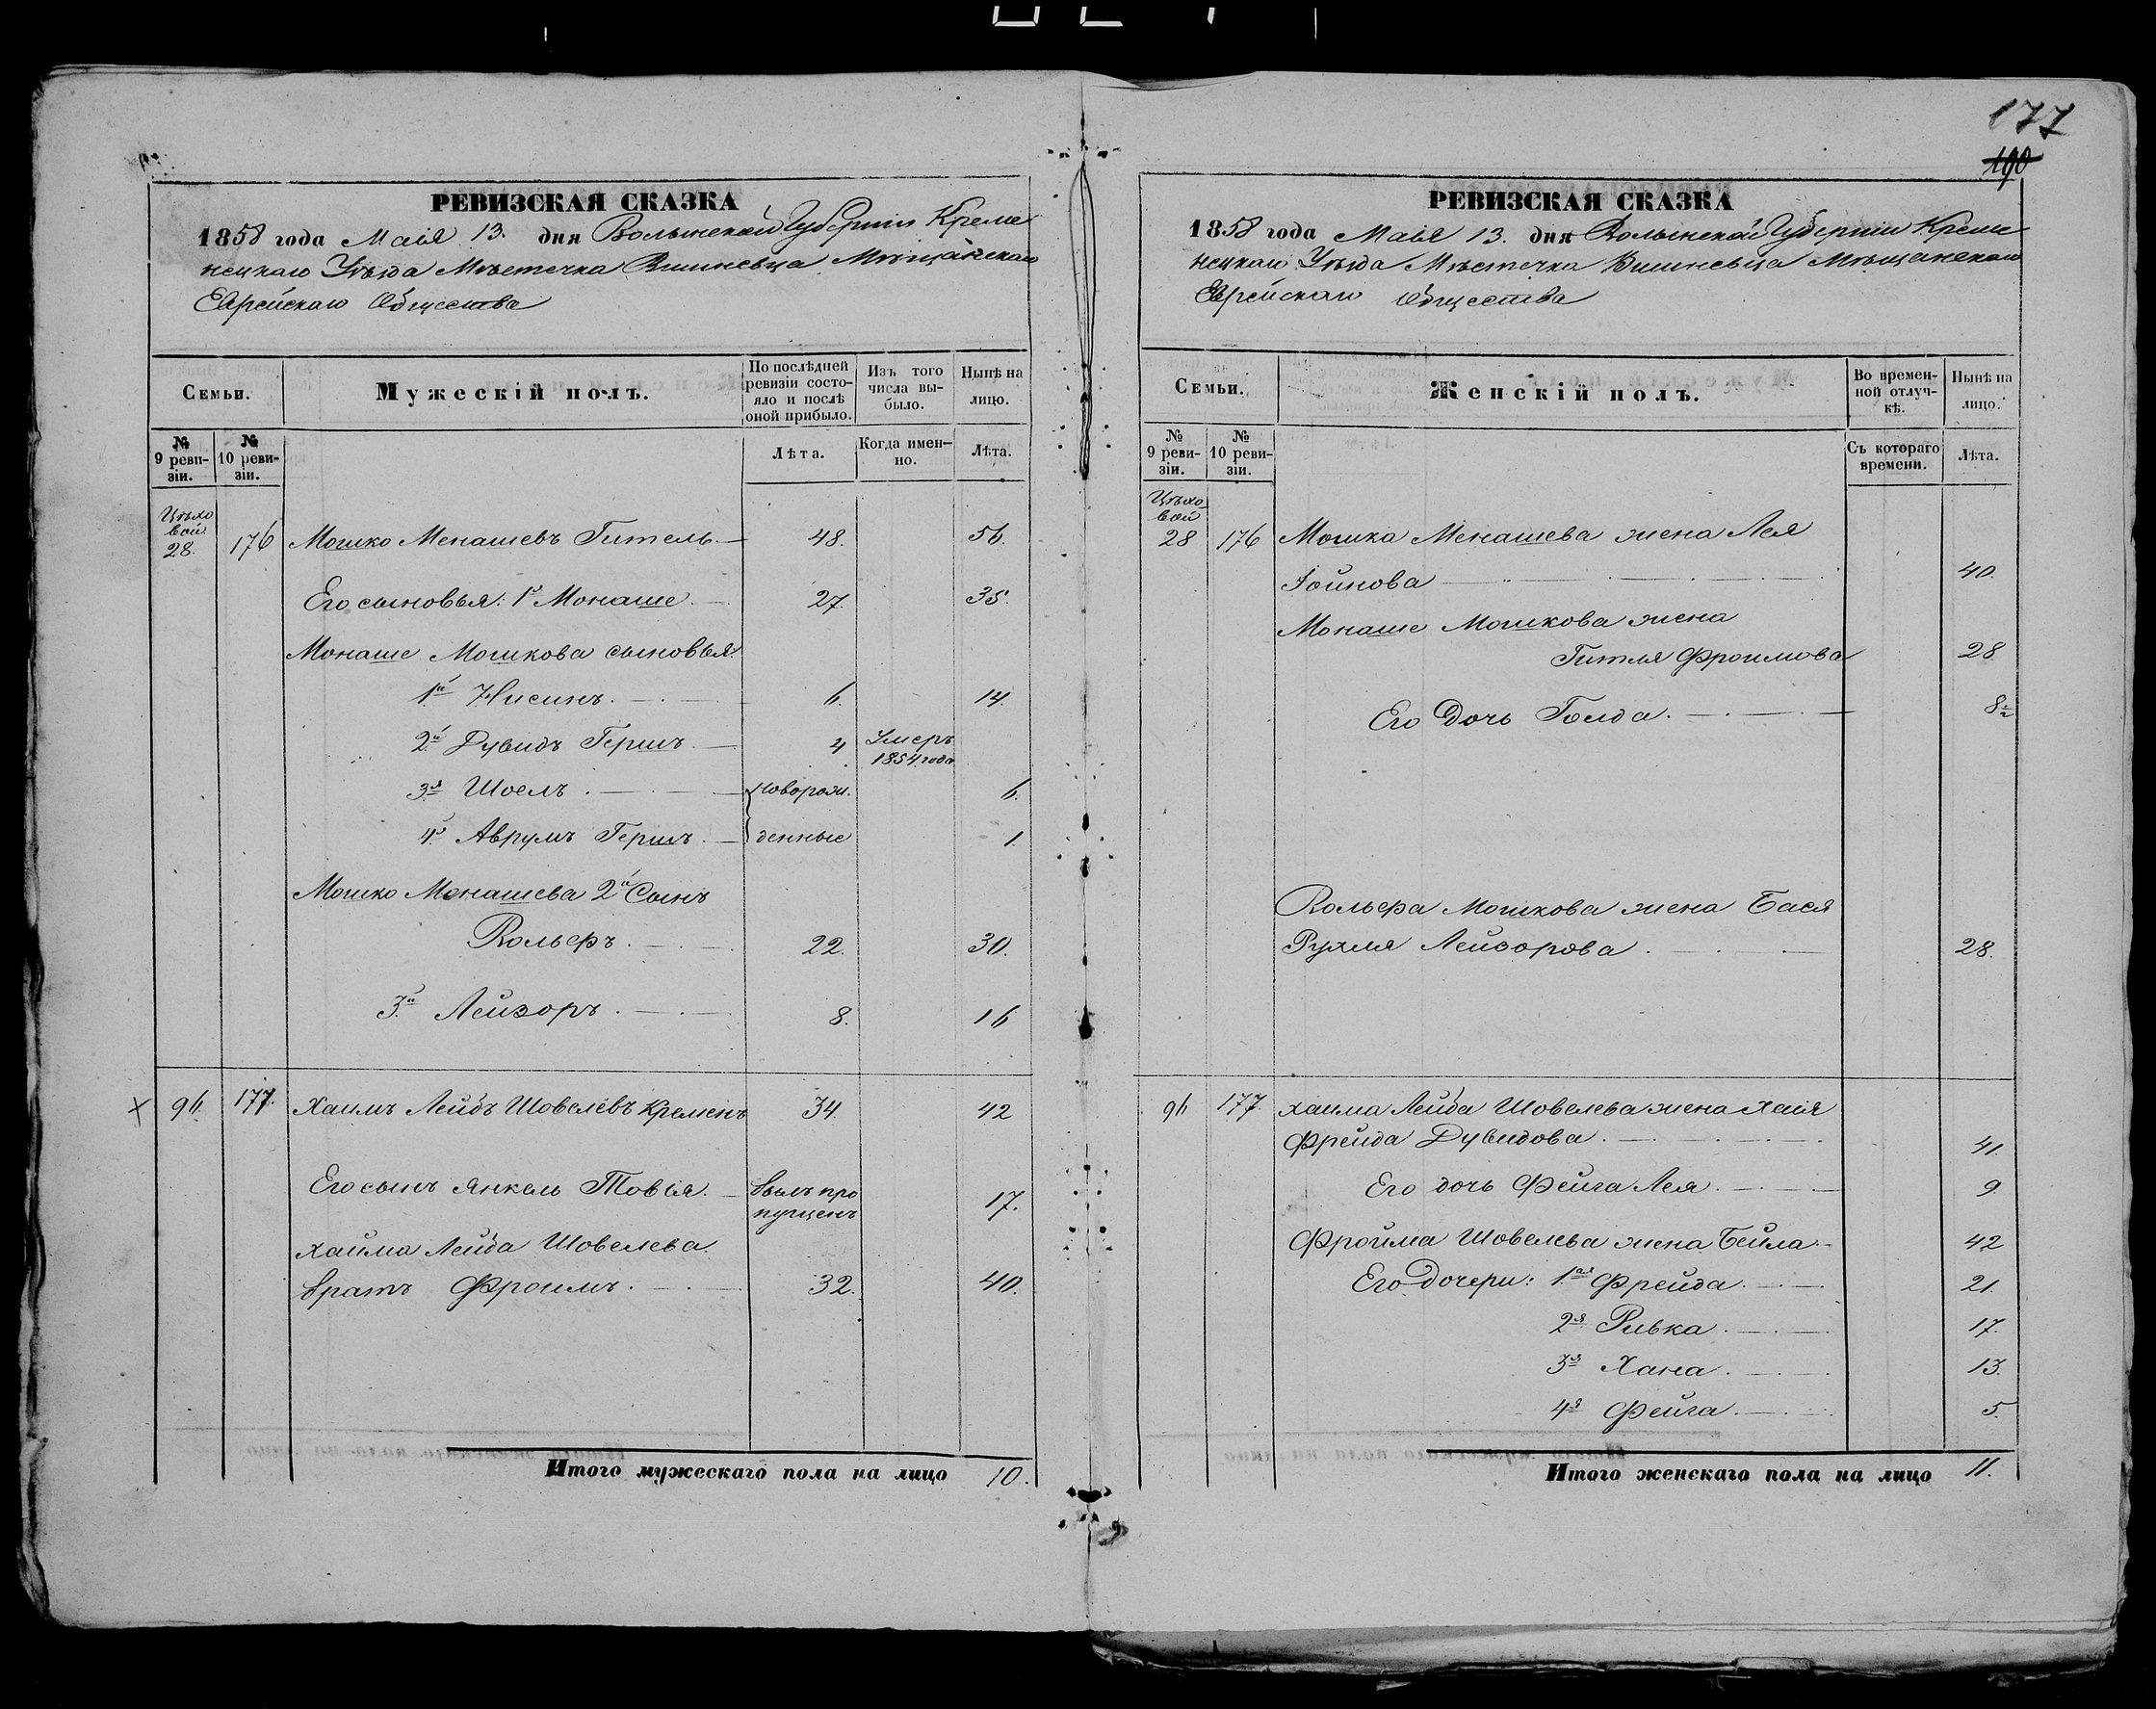 РЕВИЗСКАЯ СКАЗКА
1858 года Маія 13. дня Волынской Губерніи Креме
нецкаго Уѣзда Мѣстечка Вишневца Мѣщанскаго
Еврейскаго Общества
Семьи.
Мужескій полъ.
По послѣдней ревизіи состояло и послѣ оной прибыло.
Изъ того числа выбыло.
Нынѣ на лицо.
№ 9 ревизіи.
№ 10 ревизіи.
Лѣта.
Когда именно.
Лѣта.
Цѣхо
вой
28. 176 Мошко Менашевъ Гитель 48. 56.
Его сыновья: 1й Монаше 27. 35.
Монаше Мошкова сыновья
1й Нисинъ. 6. 14.
2й Дувидъ Гершъ 4 Умеръ
1854 года
3й Шоелъ новорож. 6.
4й Аврумъ Гершъ денные 1.
Мошко Менашева 2й Сынъ
Вольфъ 22. 30.
3й Лейзоръ 8. 16
х 96. 177. Хаимъ Лейбъ Шовелевъ Кременъ 34. 42
Его сынъ Янкель Товія былъ про
пущенъ 17.
Хаима Лейба Шовелева
братъ Фроимъ 32. 40.
Итого мужескаго пола на лицо 10.
177
190
РЕВИЗСКАЯ СКАЗКА
1858 года Маія 13. дня Волынской Губерніи Креме
нецкаго Уѣзда Мѣстечка Вишневца Мѣщанскаго
Еврейскаго Общества
Семьи.
Женскій полъ.
Во временной отлучкѣ.
Нынѣ на лицо.
№ 9 ревизіи.
№ 10 ревизіи.
Съ котораго времени.
Лѣта.
Цѣхо
вой
28 176 Мошка Менашева жена Лея
Іойнова 40.
Монаше Мошкова жена
Гитля Фроимова 28
Его Дочь Голда. 8½
Вольфа Мошкова жена Бася
Рухля Лейзорова 28.
96 177. Хаима Лейба Шовелева жена Хаія
Фрейда Дувидова. 41.
Его дочь Фейга Лея. 9
Фройма Шовелева жена Бейла 42
Его Дочери: 1ая Фрейда 21.
2я Ривка. 17.
3я Хана. 13.
4я Фейга. 5.
Итого женскаго пола на лицо 11.